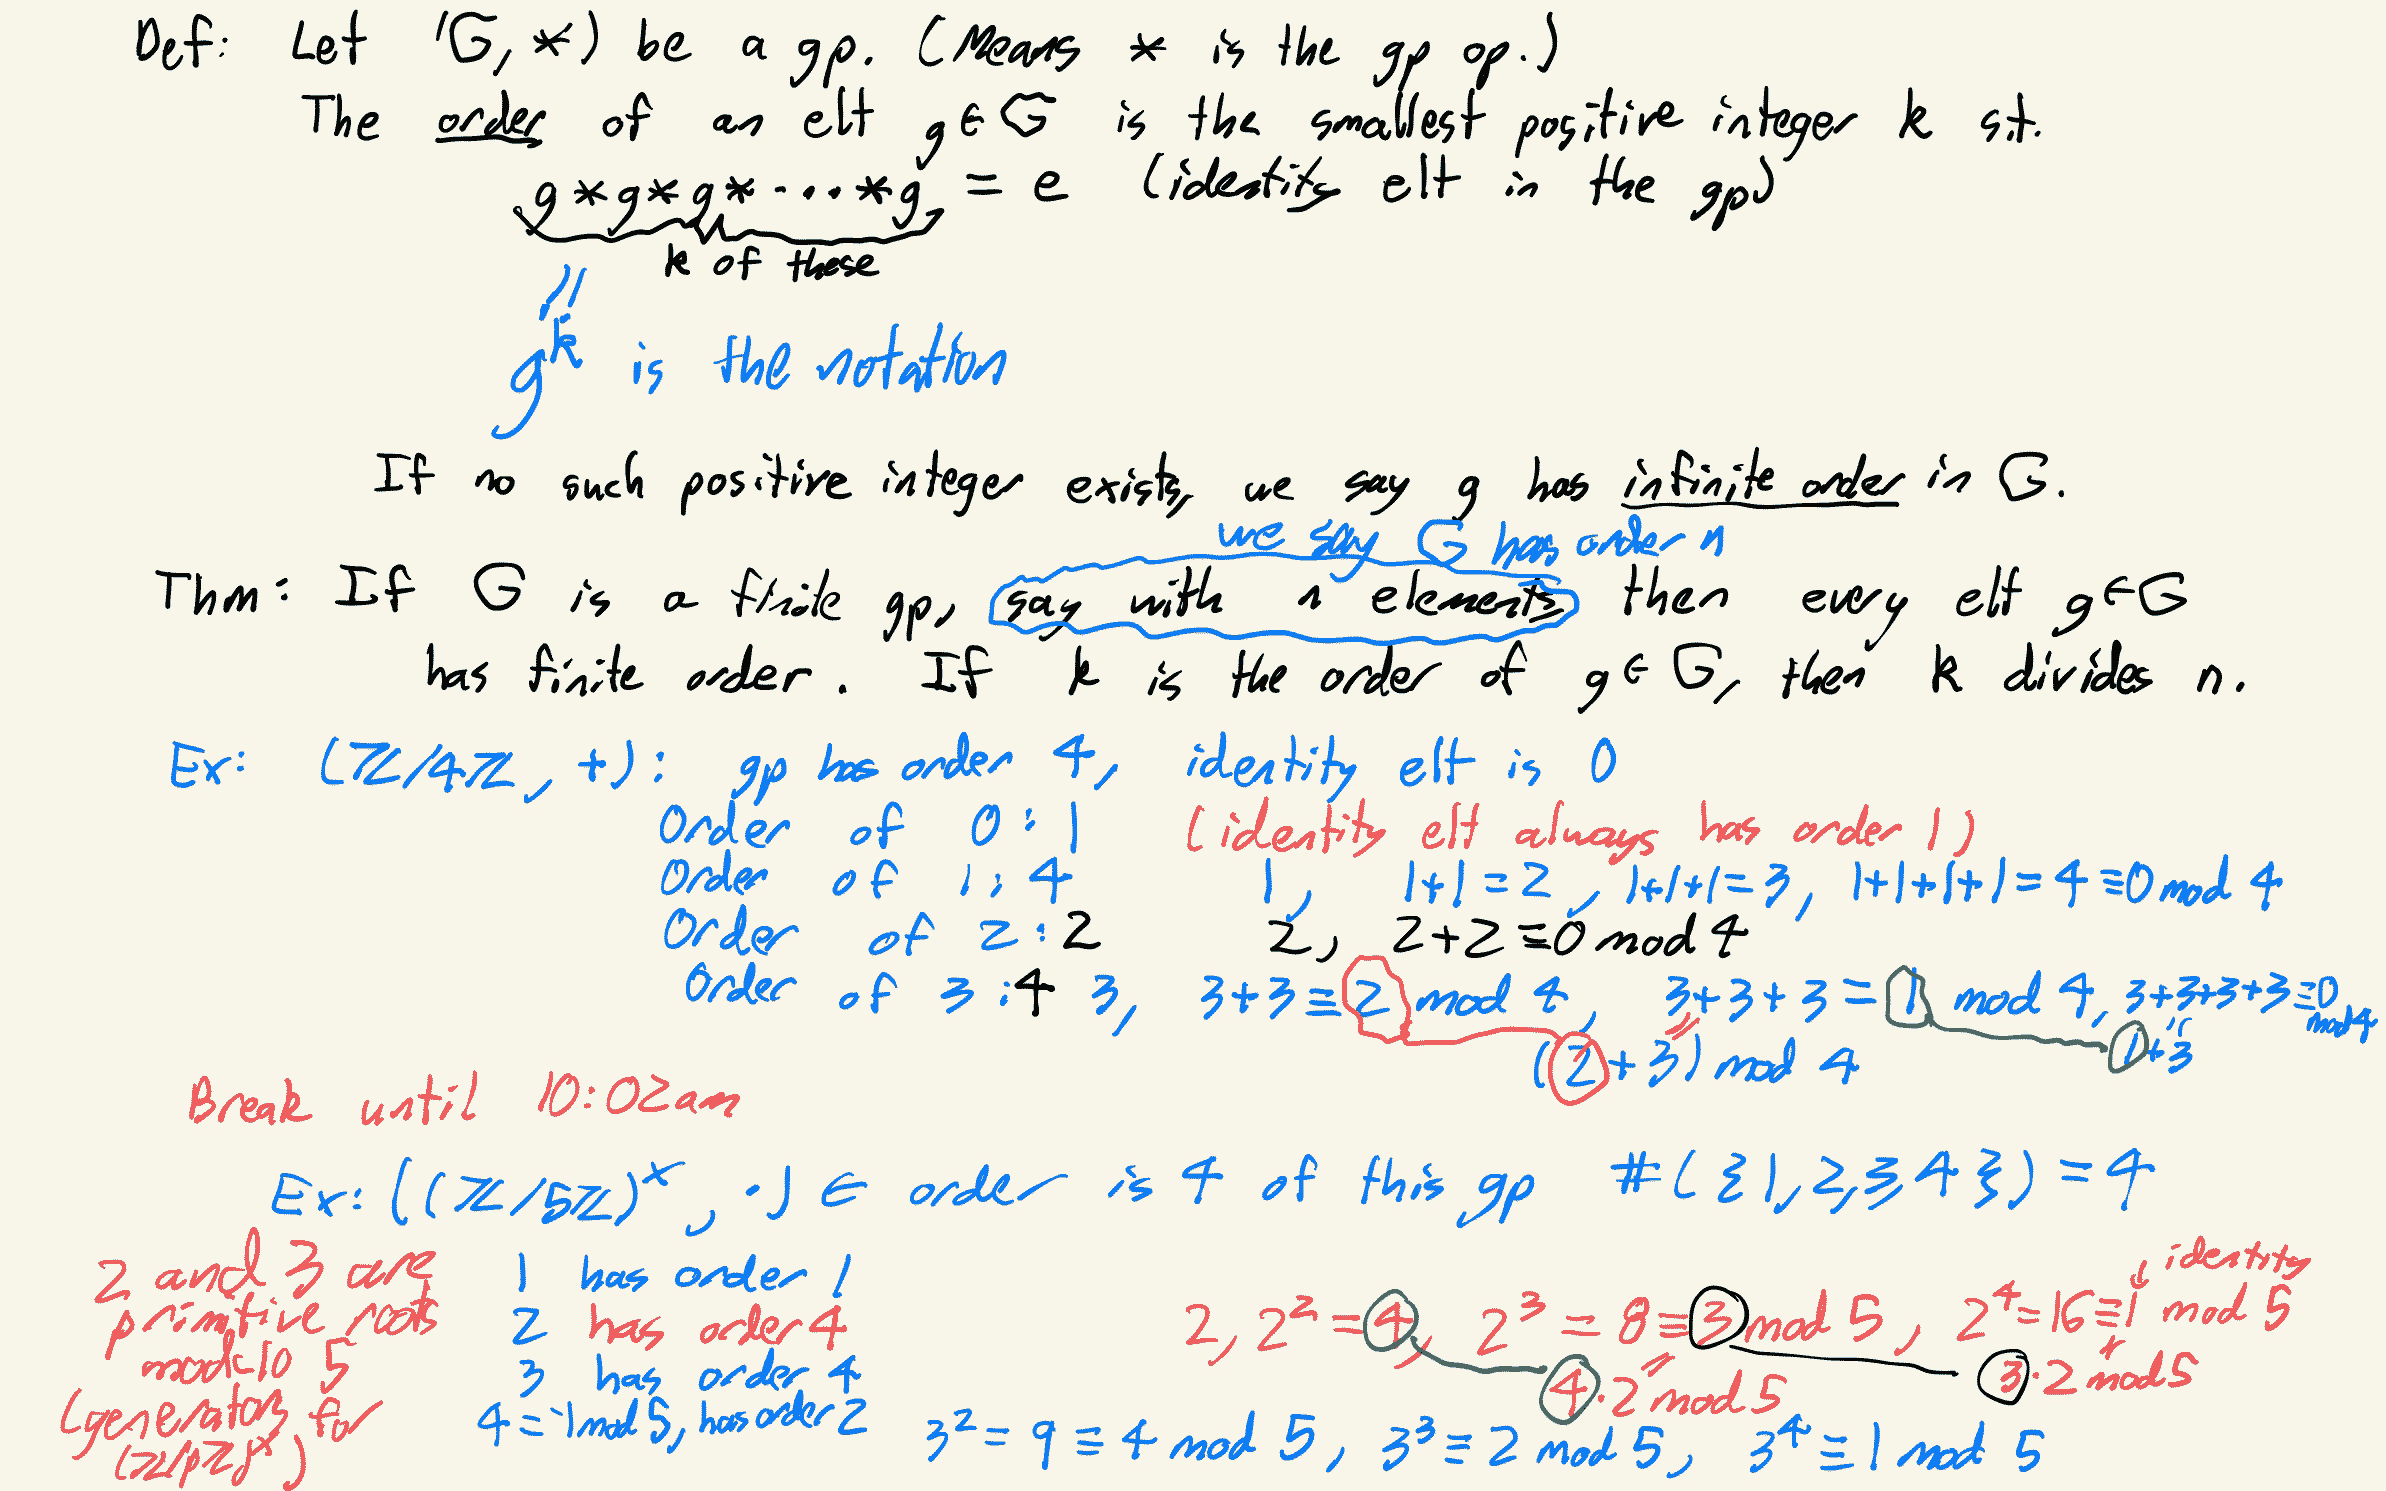 Def: Let (G, *) be a gp. (Means * is the gp op.)
The order of an elt g ∈ G is the smallest positive integer k s.t.
g * g * g * ... * g = e (identity elt in the gp)
k of these
"
g^k is the notation
If no such positive integer exists, we say g has infinite order in G.
we say G has order n
Thm: If G is a finite gp, say with n elements then every elt g ∈ G
has finite order. If k is the order of g ∈ G, then k divides n.
Ex: (ℤ/4ℤ, +): gp has order 4, identity elt is 0
Order of 0: 1 (identity elt always has order 1)
Order of 1: 4 1, 1+1=2, 1+1+1=3, 1+1+1+1=4≡0 mod 4
Order of 2: 2 2, 2+2≡0 mod 4
Order of 3: 4 3, 3+3≡2 mod 4, 3+3+3=1 mod 4, 3+3+3+3≡0 mod 4
(2+3) mod 4 1+3
Break until 10:02am
Ex: ((ℤ/5ℤ)^×, ·) ∈ order is 4 of this gp #({1,2,3,4})=4
identity
2 and 3 are 1 has order 1
primitive roots 2 has order 4 2, 2²=4, 2³=8≡3 mod 5, 2⁴=16≡1 mod 5
modulo 5 3 has order 4 4·2 mod 5 3·2 mod 5
(generators for 4=-1 mod 5, has order 2 3²=9≡4 mod 5, 3³≡2 mod 5, 3⁴≡1 mod 5
(ℤ/pℤ)^×)